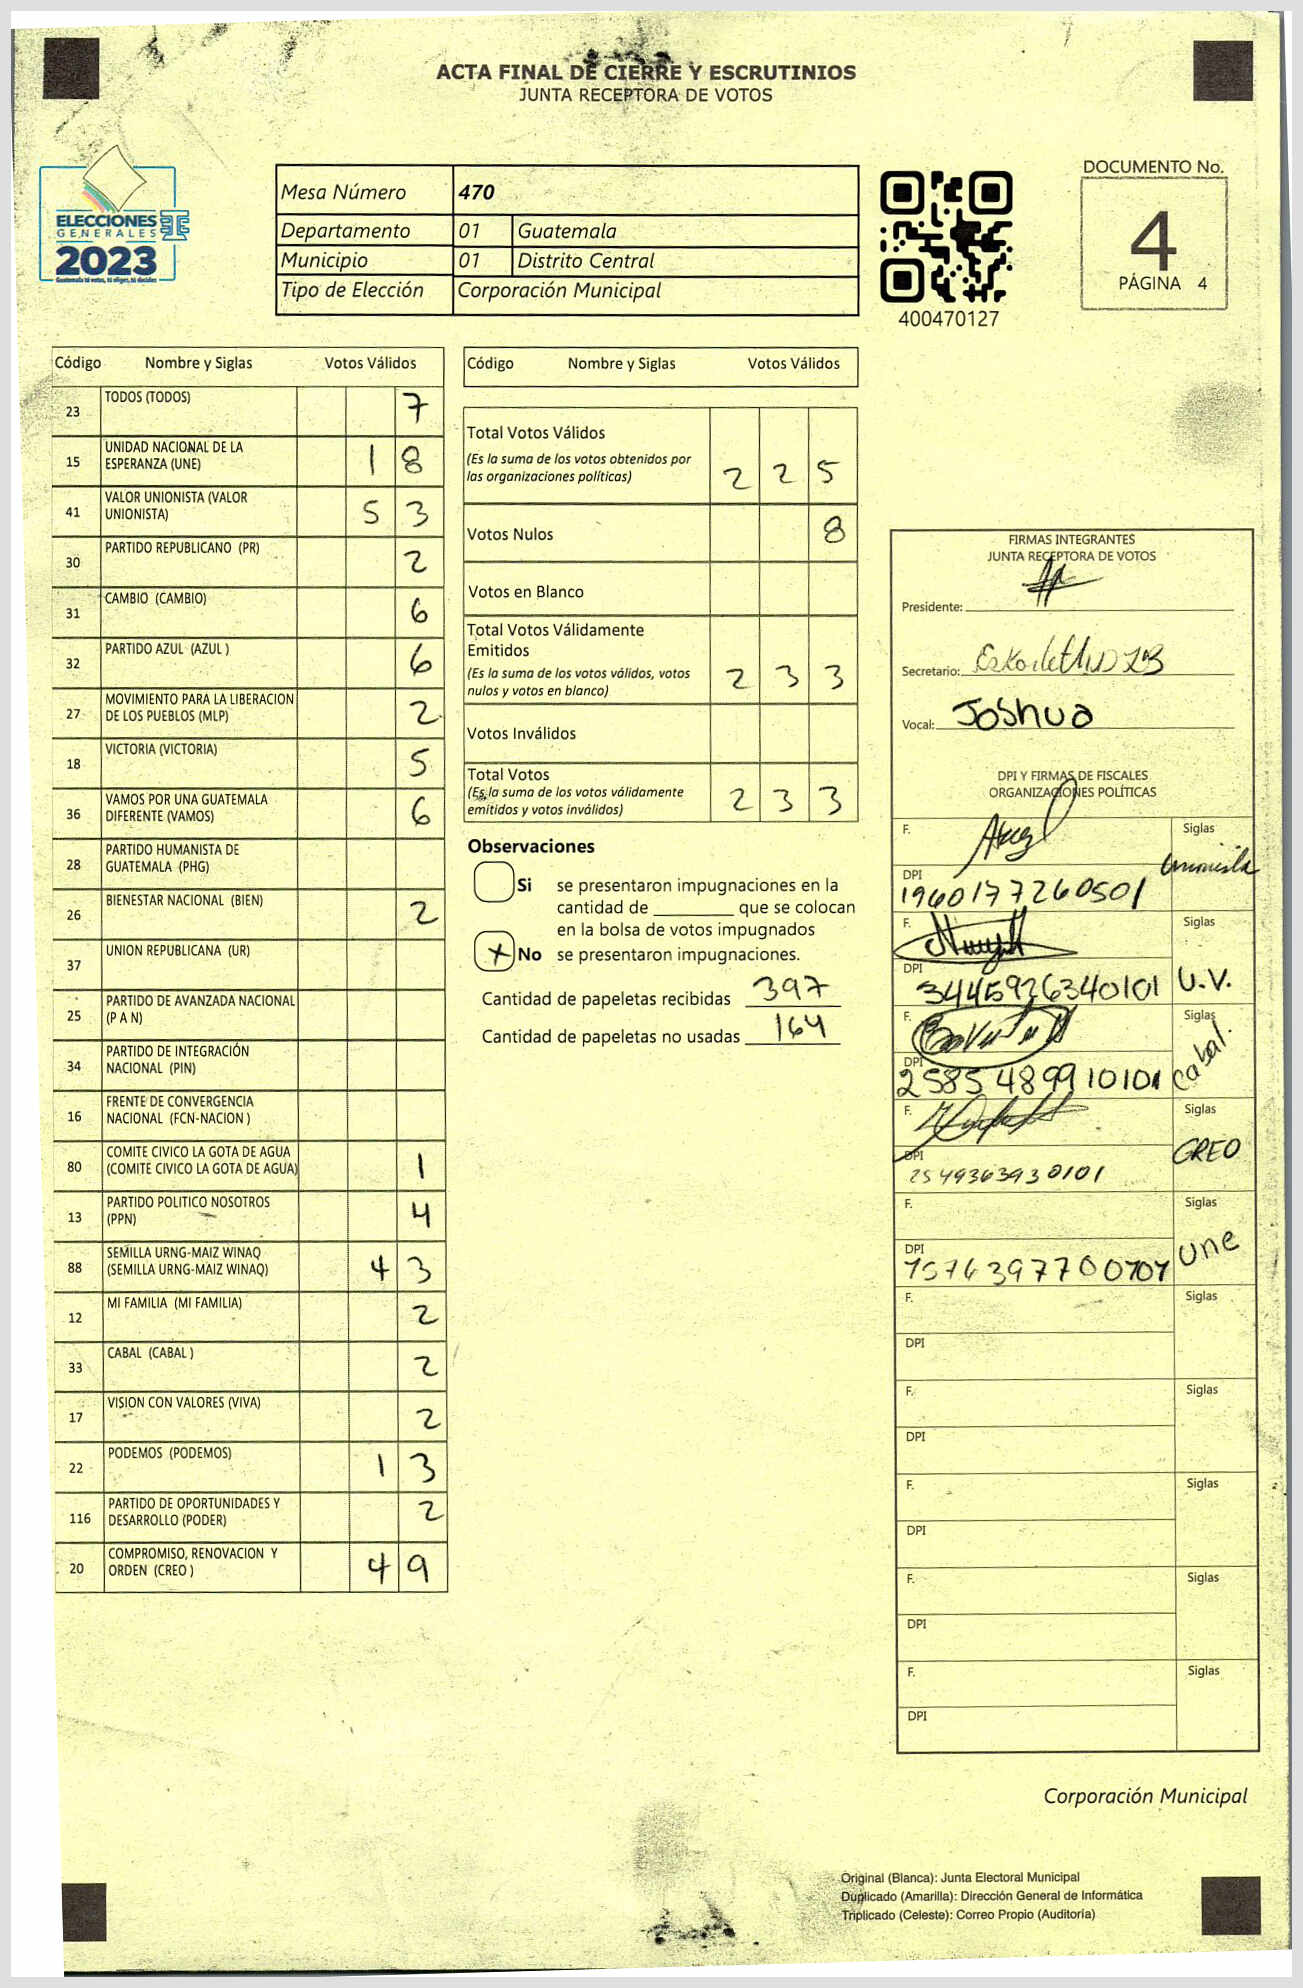 ACTA FINAL DE CIERRE Y ESCRUTINIOS
JUNTA RECEPTORA DE VOTOS
ELECCIONES
GENERALES
2023
Guatemala tú votas, tú eliges, tú decides
Mesa Número 470
Departamento 01 Guatemala
Municipio 01 Distrito Central
Tipo de Elección Corporación Municipal
400470127
DOCUMENTO No.
4
PÁGINA 4
Código Nombre y Siglas Votos Válidos
23 TODOS (TODOS) 7
15 UNIDAD NACIONAL DE LA
ESPERANZA (UNE) 18
41 VALOR UNIONISTA (VALOR
UNIONISTA) 53
30 PARTIDO REPUBLICANO (PR) 2
31 CAMBIO (CAMBIO) 6
32 PARTIDO AZUL (AZUL ) 6
27 MOVIMIENTO PARA LA LIBERACION
DE LOS PUEBLOS (MLP) 2
18 VICTORIA (VICTORIA) 5
36 VAMOS POR UNA GUATEMALA
DIFERENTE (VAMOS) 6
28 PARTIDO HUMANISTA DE
GUATEMALA (PHG)
26 BIENESTAR NACIONAL (BIEN) 2
37 UNION REPUBLICANA (UR)
25 PARTIDO DE AVANZADA NACIONAL
(P A N)
34 PARTIDO DE INTEGRACIÓN
NACIONAL (PIN)
16 FRENTE DE CONVERGENCIA
NACIONAL (FCN-NACION )
80 COMITE CIVICO LA GOTA DE AGUA
(COMITE CIVICO LA GOTA DE AGUA) 1
13 PARTIDO POLITICO NOSOTROS
(PPN) 4
88 SEMILLA URNG-MAIZ WINAQ
(SEMILLA URNG-MAIZ WINAQ) 43
12 MI FAMILIA (MI FAMILIA) 2
33 CABAL (CABAL ) 2
17 VISION CON VALORES (VIVA) 2
22 PODEMOS (PODEMOS) 13
116 PARTIDO DE OPORTUNIDADES Y
DESARROLLO (PODER) 2
20 COMPROMISO, RENOVACION Y
ORDEN (CREO ) 49
Código Nombre y Siglas Votos Válidos
Total Votos Válidos
(Es la suma de los votos obtenidos por
las organizaciones políticas) 2 2 5
Votos Nulos 8
Votos en Blanco
Total Votos Válidamente
Emitidos
(Es la suma de los votos válidos, votos
nulos y votos en blanco) 2 3 3
Votos Inválidos
Total Votos
(Es la suma de los votos válidamente
emitidos y votos inválidos) 2 3 3
Observaciones
Si se presentaron impugnaciones en la
cantidad de ________ que se colocan
en la bolsa de votos impugnados
X No se presentaron impugnaciones.
Cantidad de papeletas recibidas 397
Cantidad de papeletas no usadas 164
FIRMAS INTEGRANTES
JUNTA RECEPTORA DE VOTOS
Presidente:
Secretario:
Vocal: Joshua
DPI Y FIRMAS DE FISCALES
ORGANIZACIONES POLÍTICAS
F. Siglas
Unionista
DPI
1960177260501
F. Siglas
DPI
3445926340101 U.V.
F. Siglas
Cabal.
DPI
2585489910101
F. Siglas
CREO
DPI
2549363930101
F. Siglas
une
DPI
F. Siglas
DPI
F. Siglas
DPI
F. Siglas
DPI
F. Siglas
DPI
F. Siglas
DPI
Corporación Municipal
Original (Blanca): Junta Electoral Municipal
Duplicado (Amarilla): Dirección General de Informática
Triplicado (Celeste): Correo Propio (Auditoría)